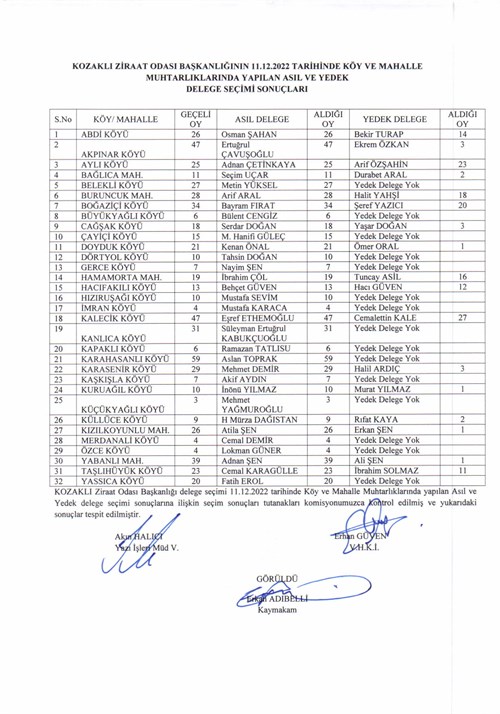 KOZAKLI ZİRAAT ODASI BAŞKANLIĞININ 11.12.2022 TARİHİNDE KÖY VE MAHALLE
MUHTARLIKLARINDA YAPILAN ASIL VE YEDEK
DELEGE SEÇİMİ SONUÇLARI
S.No KÖY/ MAHALLE GEÇELİ OY ASIL DELEGE ALDIĞI OY YEDEK DELEGE ALDIĞI OY
1 ABDİ KÖYÜ 26 Osman ŞAHAN 26 Bekir TURAP 14
2 AKPINAR KÖYÜ 47 Ertuğrul ÇAVUŞOĞLU 47 Ekrem ÖZKAN 3
3 AYLI KÖYÜ 25 Adnan ÇETİNKAYA 25 Arif ÖZŞAHİN 23
4 BAĞLICA MAH. 11 Seçim UÇAR 11 Durabet ARAL 2
5 BELEKLİ KÖYÜ 27 Metin YÜKSEL 27 Yedek Delege Yok
6 BURUNCUK MAH. 28 Arif ARAL 28 Halit YAHŞİ 18
7 BOĞAZİÇİ KÖYÜ 34 Bayram FIRAT 34 Şeref YAZICI 20
8 BÜYÜKYAĞLI KÖYÜ 6 Bülent CENGİZ 6 Yedek Delege Yok
9 CAĞŞAK KÖYÜ 18 Serdar DOĞAN 18 Yaşar DOĞAN 3
10 ÇAYİÇİ KÖYÜ 15 M. Hanifi GÜLEÇ 15 Yedek Delege Yok
11 DOYDUK KÖYÜ 21 Kenan ÖNAL 21 Ömer ORAL 1
12 DÖRTYOL KÖYÜ 10 Tahsin DOĞAN 10 Yedek Delege Yok
13 GERCE KÖYÜ 7 Nayim ŞEN 7 Yedek Delege Yok
14 HAMAMORTA MAH. 19 İbrahim ÇÖL 19 Tuncay ASİL 16
15 HACIFAKILI KÖYÜ 13 Behçet GÜVEN 13 Hacı GÜVEN 12
16 HIZIRUŞAĞI KÖYÜ 10 Mustafa SEVİM 10 Yedek Delege Yok
17 İMRAN KÖYÜ 4 Mustafa KARACA 4 Yedek Delege Yok
18 KALECİK KÖYÜ 47 Eşref ETHEMOĞLU 47 Cemalettin KALE 27
19 KANLICA KÖYÜ 31 Süleyman Ertuğrul KABUKÇUOĞLU 31 Yedek Delege Yok
20 KAPAKLI KÖYÜ 6 Ramazan TATLISU 6 Yedek Delege Yok
21 KARAHASANLI KÖYÜ 59 Aslan TOPRAK 59 Yedek Delege Yok
22 KARASENİR KÖYÜ 29 Mehmet DEMİR 29 Halil ARDIÇ 3
23 KAŞKIŞLA KÖYÜ 7 Akif AYDIN 7 Yedek Delege Yok
24 KURUAĞIL KÖYÜ 10 İnönü YILMAZ 10 Murat YILMAZ 1
25 KÜÇÜKYAĞLI KÖYÜ 3 Mehmet YAĞMUROĞLU 3 Yedek Delege Yok
26 KÜLLÜCE KÖYÜ 9 H Mürza DAĞISTAN 9 Rıfat KAYA 2
27 KIZILKOYUNLU MAH. 26 Atila ŞEN 26 Erkan ŞEN 1
28 MERDANALİ KÖYÜ 4 Cemal DEMİR 4 Yedek Delege Yok
29 ÖZCE KÖYÜ 4 Lokman GÜNER 4 Yedek Delege Yok
30 YABANLI MAH. 39 Adnan ŞEN 39 Ali ŞEN 1
31 TAŞLIHÜYÜK KÖYÜ 23 Cemal KARAGÜLLE 23 İbrahim SOLMAZ 11
32 YASSICA KÖYÜ 20 Fatih EROL 20 Yedek Delege Yok
KOZAKLI Ziraat Odası Başkanlığı delege seçimi 11.12.2022 tarihinde Köy ve Mahalle Muhtarlıklarında yapılan Asıl ve
Yedek delege seçimi sonuçlarına ilişkin seçim sonuçları tutanakları komisyonumuzca kontrol edilmiş ve yukarıdaki
sonuçlar tespit edilmiştir.
Akın HALICI Erhan GÜVEN
Yazı İşleri Müd V. V.H.K.İ.
GÖRÜLDÜ
Erkan ADIBELLİ
Kaymakam